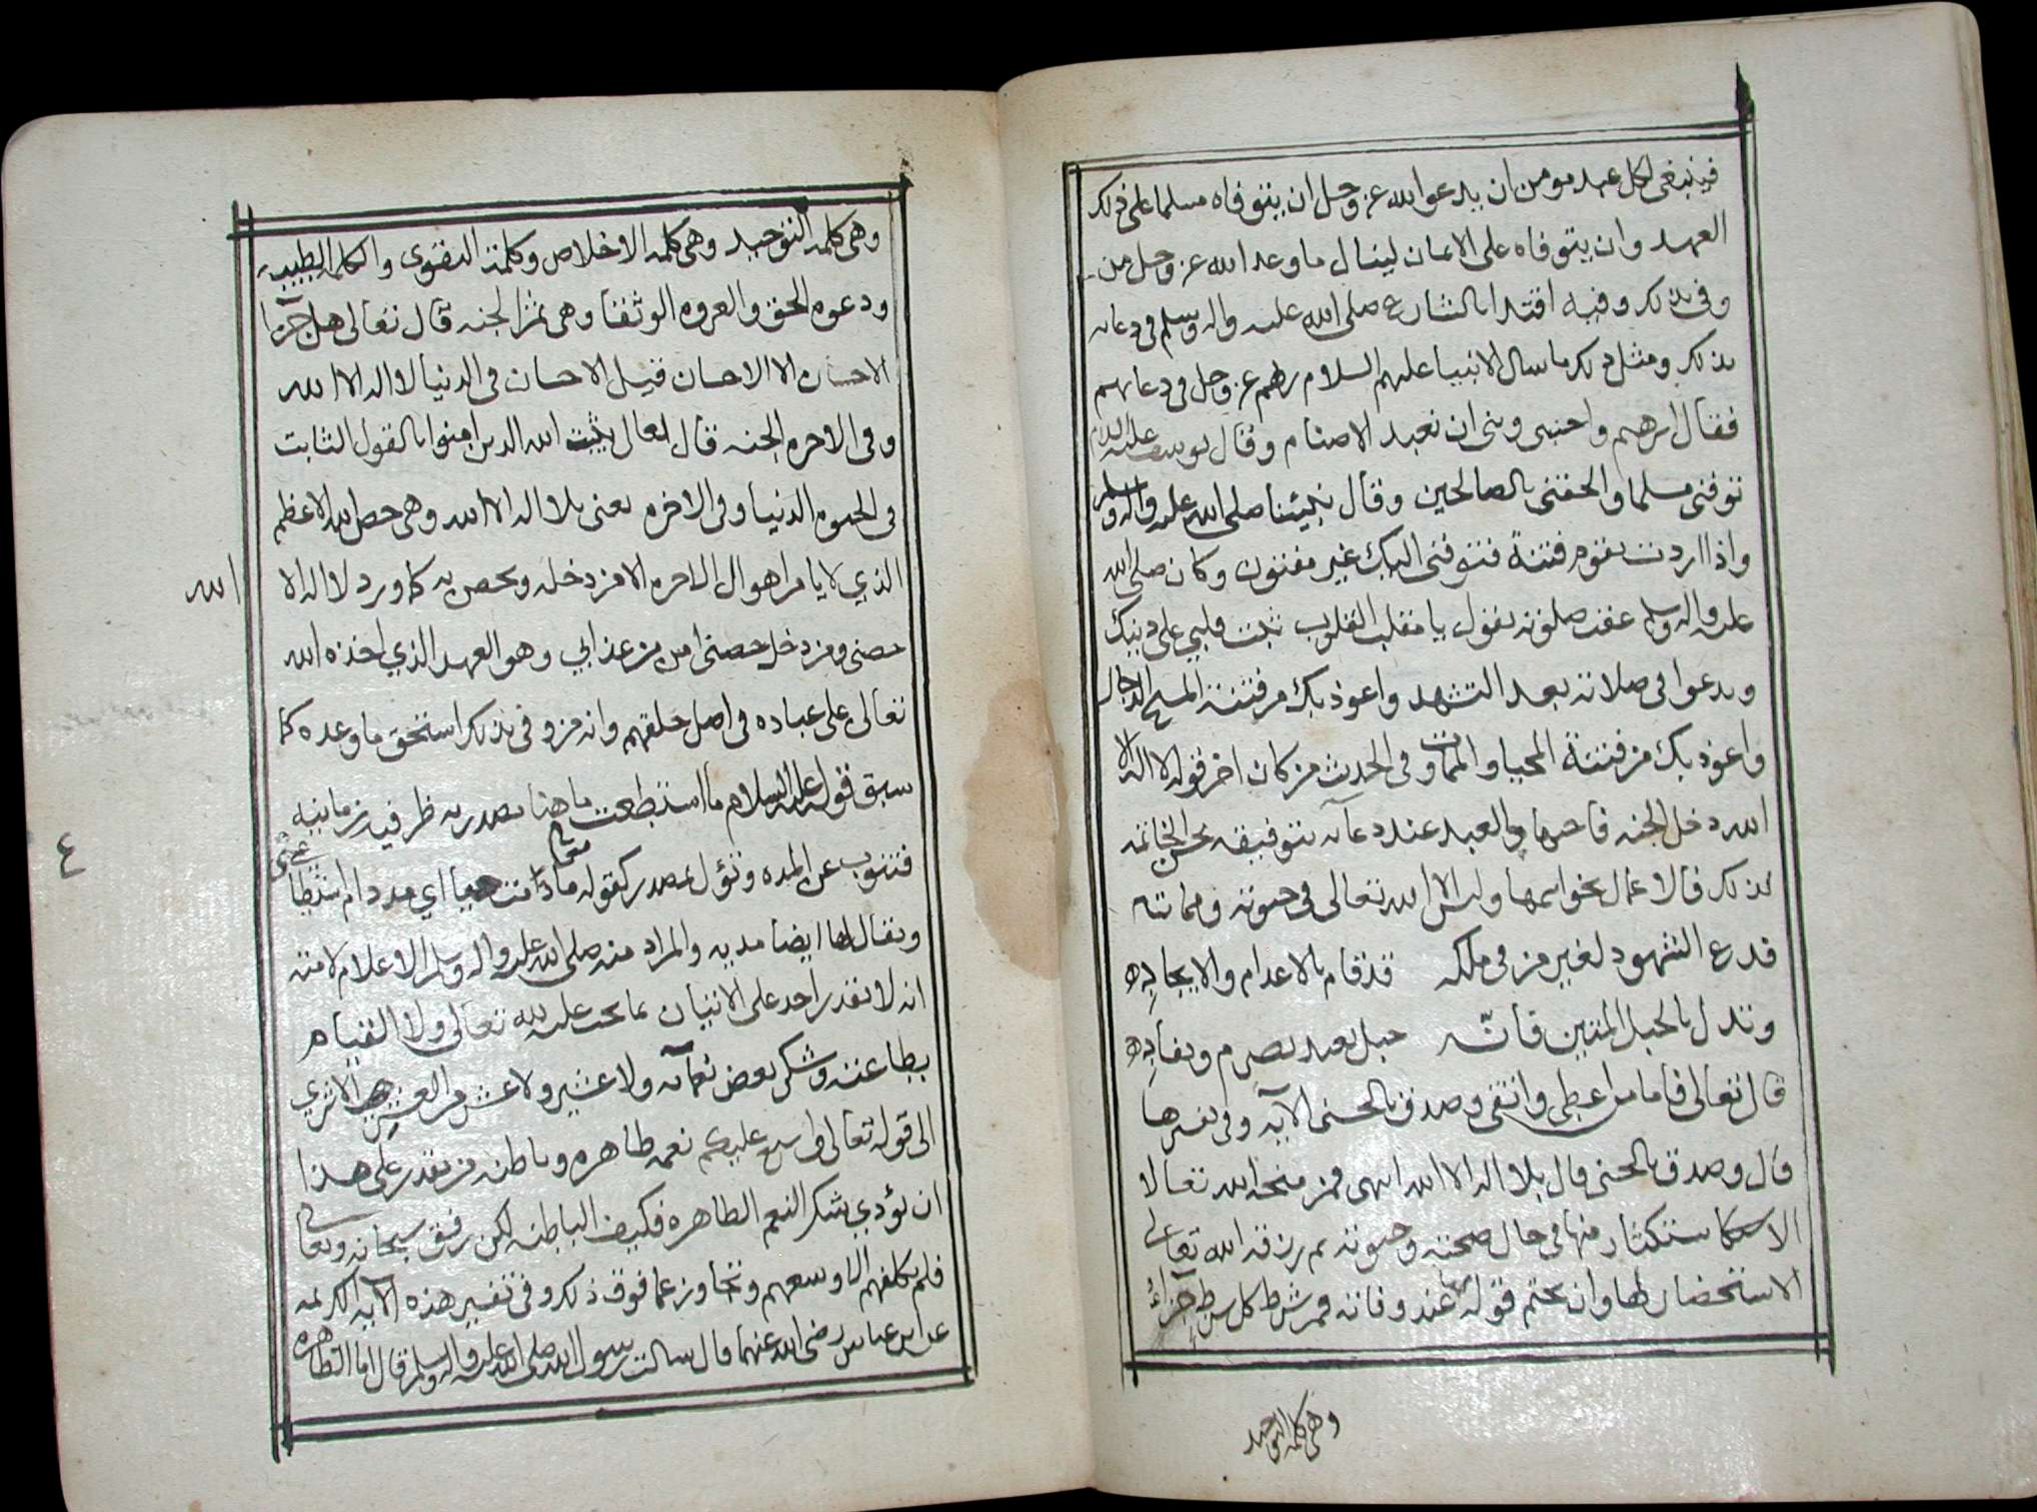 فينبغي لكل عبد مومن ان يدعوا الله عز وجل ان يتوفاه مسلما على ذلك
العهد وان يتوفاه على الايمان لينال ما وعد الله عز وجل من
وفى بذلك وفيه اقتدا بالشارع صلى الله عليه واله وسلم في دعايه
بذلك ومثل ذلك ما سال الانبيا عليهم السلام ربهم عز وجل في دعايهم
فقال ابرهيم واجنبني وبني ان نعبد الاصنام وقال يوسف عليه السلام
توفني مسلما والحقني بالصالحين وقال نبيئنا صلى الله عليه واله وسلم
واذا اردت بقوم فتنة فتوفني اليك غير مفتون وكان صلى الله
عليه واله وسلم عقب صلوته يقول يا مقلب القلوب ثبت قلبي على دينك
ويدعوا في صلاته بعد التشهد واعوذ بك من فتنة المسيح الدجال
واعوذ بك من فتنة المحيا والممات وفي الحديث من كان اخر قوله لا اله الا
الله دخل الجنه فاحبها والعبد عند دعايه بتوفيقه بحسن الخاتمه
لذلك فالاعمال بخواتمها وليس الا الله تعالى في حيوته ومماته
فدع الشهود لغير من في ملكه قد قام بالاعدام والايجاده
وتدل بالحبل المتين فانّه حبل لعبد بصرم ونفاده
قال تعالى فاما من اعطى واتقى وصدق بالحسنى الآيه وفي تفسيرها
قال وصدق بالحسنى قال بلا اله الا الله انتهى فمن منحه الله تعالا
الاستكثار منها في حال صحته وحيوته ثم رزقه الله تعالى
الاستحضار لها وان يختم قوله بها عند وفاته فمن شرط كل شرط جزاءً
وهي كلمة التوحيد
وهي كلمة التوحيد وهي كلمة الاخلاص وكلمة التقوى والكلمة الطيبه
ودعوه الحق والعروه الوثقا وهي ثمن الجنه قال تعالى هل جزآ
الاحسان الا الاحسان قيل الاحسان في الدنيا لا اله الا الله
وفي الاخره الجنه قال تعالى يثبت الله الذين امنوا بالقول الثابت
في الحيوه الدنيا وفي الاخره يعني بلا اله الا الله وهي حصن الله الاعظم
الذي لا يامن اهوال الاخره الا من دخله وتحصن به كما ورد لا اله الا
الله
حصني ومن دخل حصني امن من عذابي وهو العهد الذي اخذه الله
تعالى على عباده في اصل خلقهم وانه من وفى بذلك استحق ما وعده كما
سبق قوله عليه السلام ما استطعت ما هنا مصدريه ظرفيه زمانيه
فتنوب عن المده وتؤل بمصدر كقوله تعالى ما دمت حيا اي مدة دوام استطاعتي
٤
ويقال لها ايضا مديه والمراد منه صلى الله عليه واله وسلم الاعلام لامته
انه لا يقدر احد على الاتيان بما يجب عليه لله تعالى ولا القيام
بطاعته وشكر بعض نعمآئه ولا عشير ولا عشر من العشير الا ترى
الى قوله تعالى واسبغ عليكم نعمه ظاهره وباطنه من يقدر على هذا
ان يؤدي شكر النعم الظاهره فكيف الباطنه لكن رفق سبحانه وتعالى
فلم يكلفهم الا وسعهم وتجاوز عما فوق ذلك وفي تفسير هذه الآيه الكريمه
عن ابن عباس رضي الله عنهما قال سالت رسول الله صلى الله عليه واله وسلم قال اما الظاهره